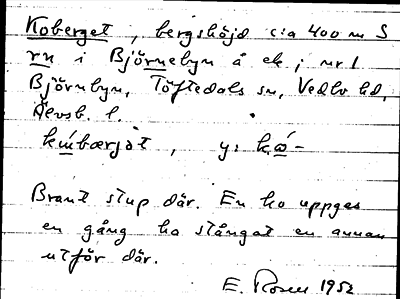 Koberget, bergshöjd c:a 400 m S
rn i Björnebyn å ek; nr 1
Björnebyn, Töftedals sn, Vedbo hd,
Älvsb. l.
kɯ́bærjət, y: kώ-
Brant stup där. En ko uppges
en gång ha stångat en annan
utför där.
E. Rosell 1952